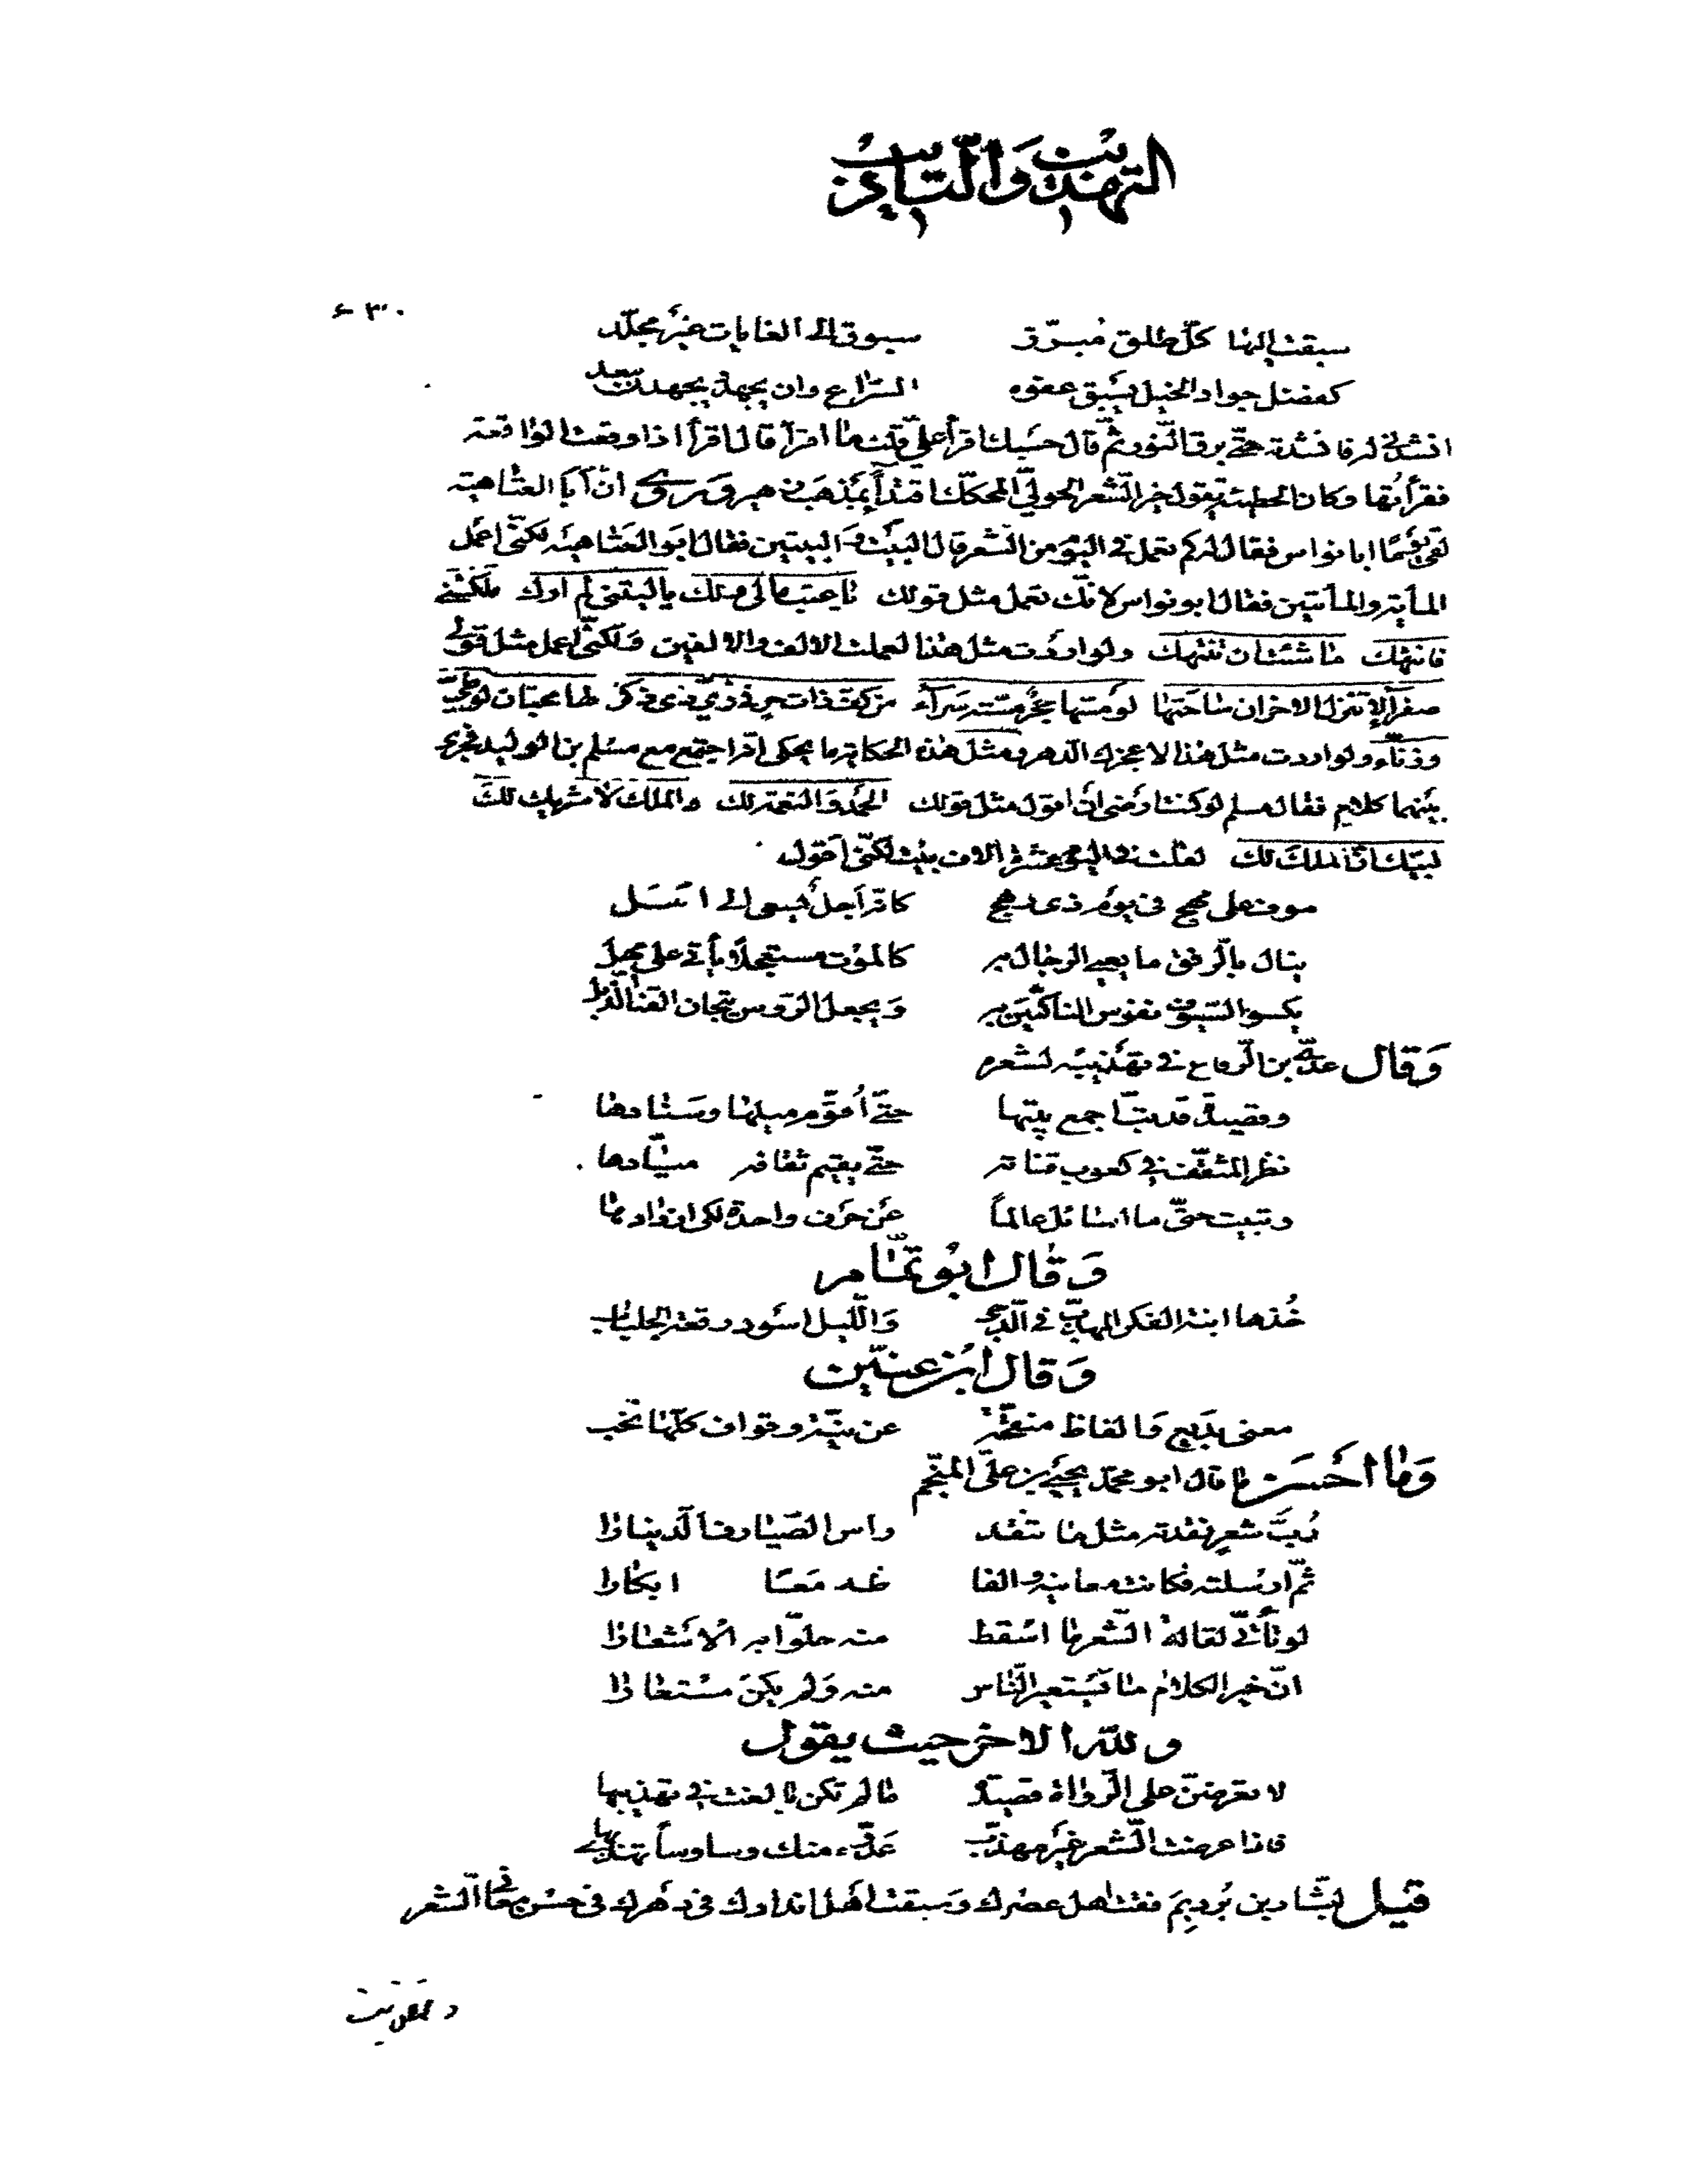 التهذيب والتأديب
٦٣٠
سبقت اليها كلّ طلق مُبرّز سبوق الى الغايات غير مجلّد
كفضل جواد الخيل يسبق عفوه السّراع وان يجهد ويجهدن يبعد
انشدني له فانشدته حتّى برق النّور ثمّ قال حسبك اقرأ عليّ قلت ما اقرأ قال اقرأ اذا وقعت الواقعة
فقرأتها وكان الحطيئة يقول خير الشّعر الحوليّ المحكّك اقتدأ بمذهب زهير ان ابا العتاهية
لقى يومًا ابا نواس فقال له كم تعمل في اليوم من الشّعر قال البيت والبيتين فقال ابو العتاهية لكنّى اعمل
المأية والمأتين فقال ابو نواس لانّك تعمل مثل قولك يا عتب ما لى ولك يا ليتنى لم ارك ملكتنى
فانتهك ما شئت ان تنتهك ولو اردت مثل هذا لعملت الالف والالفين ولكنّى اعمل مثل قولى
صفرآء لا تنزل الاحزان ساحتها لو مسّها حجر مسّته سرّآء من كفّ ذات حر في زيّ ذى ذكر لها محبّان لوطىّ
وزنّاء ولو اردت مثل هذا لاعجزك الدهر ومثل هذه الحكاية ما يحكى انه اجتمع مع مسلم بن الوليد فجرى
بينهما كلام فقال مسلم لو كنت ارضى ان اقول مثل قولك الحمد والنعمة لك والملك لا شريك لك
لبيك انّ الملك لك لقلت في اليوم عشرة الاف بيت لكنّى اقول
موف على مهج في يوم ذى رهج كانّه اجل يسعى الى امل
ينال بالرفق ما يعيى الرجال به كالموت مستعجلا يأتى على مهل
يكسو السيوف نفوس الناكثين به ويجعل الرّوس تيجان القنا الذّبل
وقال عدىّ بن الرقاع في تهذيبه لشعره
وقصيدة قد بتّ اجمع بيتها حتّى أقوّم ميلها وسنادها
نظر المثقّف في كعوب قناته حتّى يقيم ثقافه ميّادها
وتبيت حتّى ما اسائل عالماً عن حرف واحدة لكى ازدادها
وقال ابو تمّام
خُذها ابنة الفكر المهذّب في الدّجى والليل اسود رقعة الجلباب
وقال ابن عنين
معنى بديع والفاظ منقّحة عن بيّنة وقواف كلّها نخب
وما احسن ما قال ابو محمّد يحيى بن علىّ المنجّم
رُبّ شعر نقدته مثل ما تنقد راس الصّيارف الدينارا
ثمّ ارسلته فكانت معانيه والفا ظه معًا ابكارا
لو تأتّى لقالة الشّعر ما اسقط منه حلّوا به الاشعارا
انّ خير الكلام ما يستعير النّاس منه ولم يكن مستعارا
ولله الاخر حيث يقول
لا تعرضنّ على الرّواة قصيدة ما لم تكن بالغت في تهذيبها
فاذا عرضت الشّعر غير مهذّب عدّوه منك وساوساً تهذى بها
قيل لبشّار بن بُرد بِمَ فقت اهل عصرك وسبقت اهل اندادك في دهرك في حسن معانى الشعر